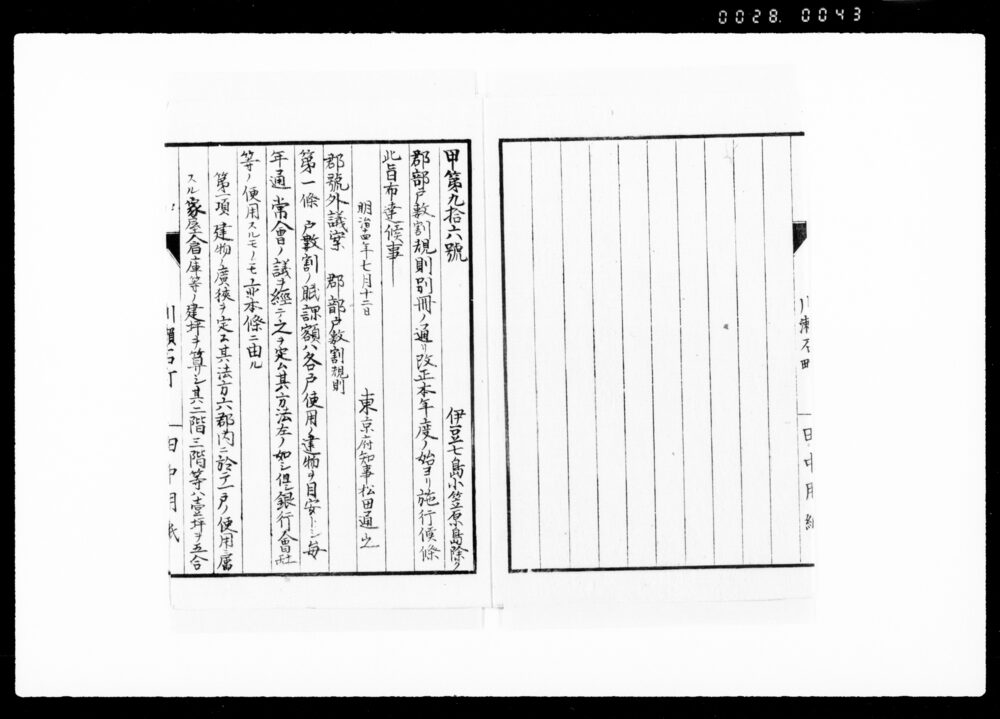 0028. 0043
甲第九拾六號
伊豆七島小笠原島除ク
郡部戸數割規則別冊ノ通リ改正本年度ノ始ヨリ施行候條
此旨布達候事
明治十四年七月十二日
東京府知事松田通之
郡號外議案 郡部戸數割規則
第一條 戸數割ノ賦課額ハ各戸使用ノ建物ヲ目安トシ毎
年通常會ノ議ヲ經テ之ヲ定ム其方法左ノ如シ但シ銀行會社
等ノ使用スルモノニモ亦本條ニ由ル
第一項 建物ノ廣狹ヲ定ム其法方六郡内ニ於テ一戸ノ使用ニ屬
スル家屋倉庫等ノ建坪ヲ算シ其二階三階等ハ壹坪ヲ五合